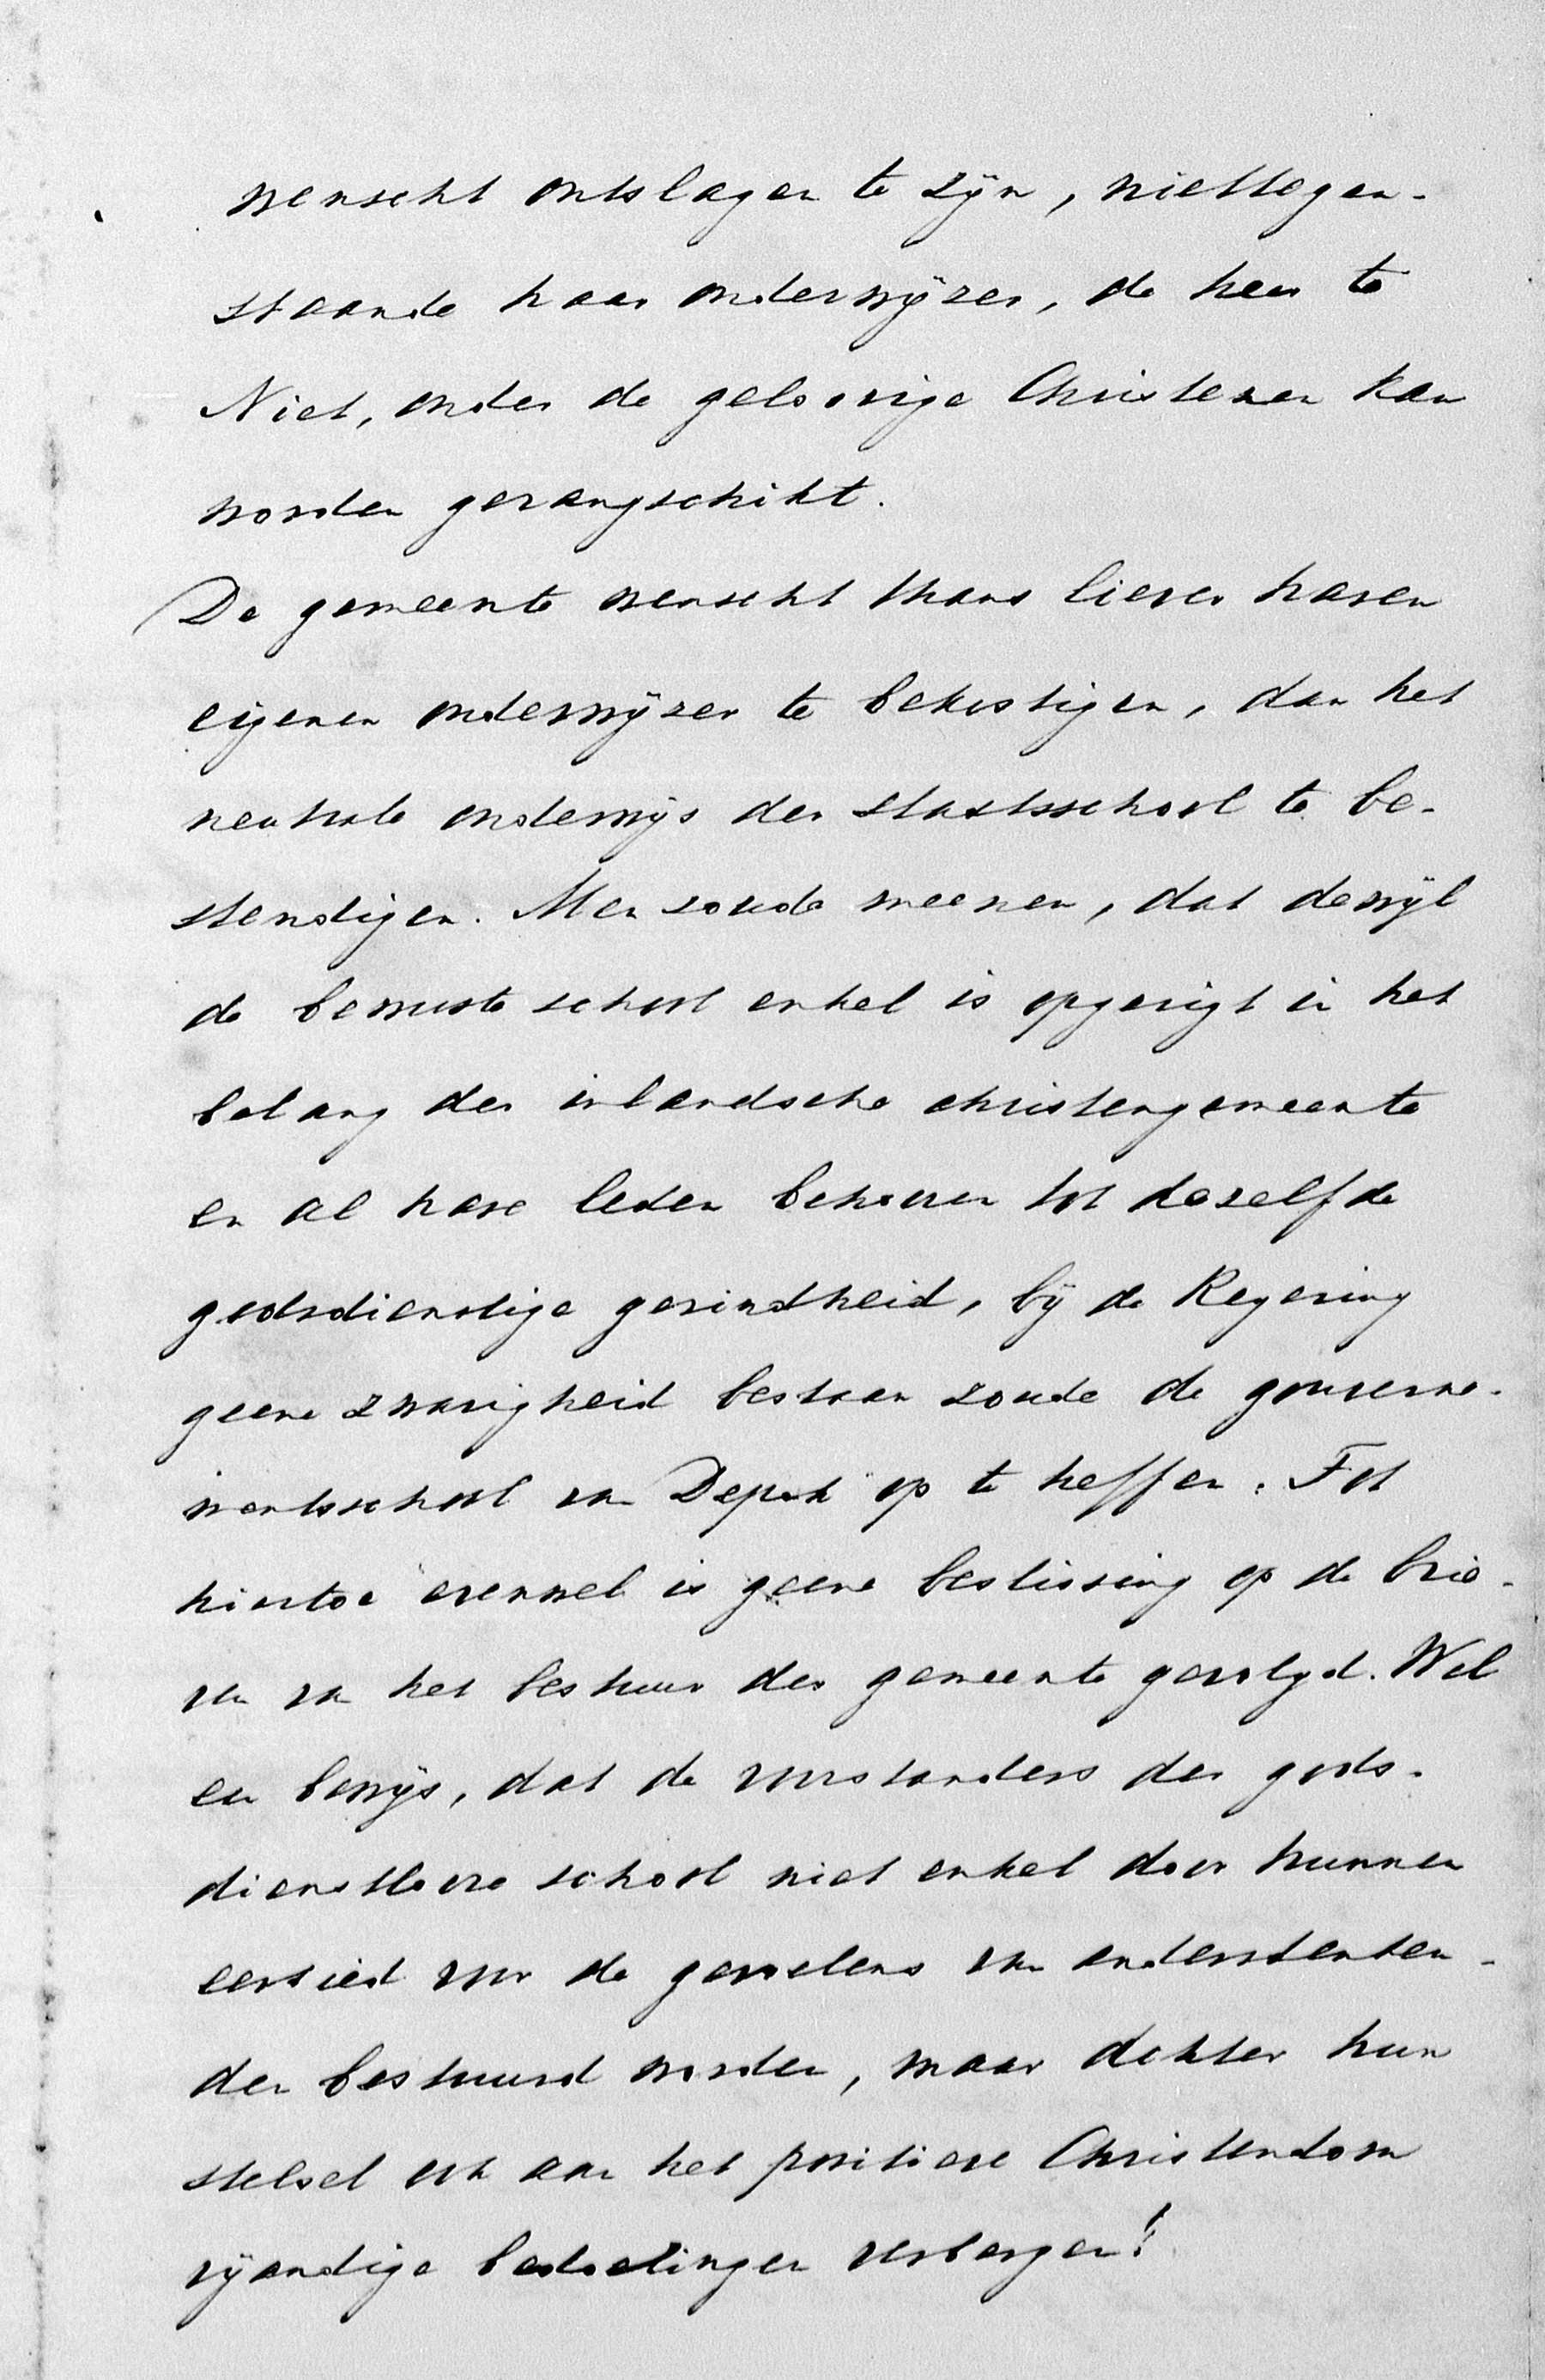 wenscht ontslagen te zijn, niettegen-
staande haar onderwijzer, de heer te
Niet, onder de geloovige Christenen kan
worden gerangschikt.
De gemeente wenscht thans liever haren
eigenen onderwijzer te bekostigen, dan het
neutrale onderwijs der staatsschool te be-
stendigen. Men zoude meenen, dat dewijl
de bewuste school enkel is opgerigt in het
belang der inlandsche christengemeente
en al hare leden behooren tot dezelfde
godsdienstige gezindheid, bij de Regering
geene zwarigheid bestaan zoude de gouverne-
mentsschool van Depok op te heffen. Tot
hiertoe evenwel is geene beslissing op de brie-
ven van het bestuur der gemeente gevolgd. Wel
een bewijs, dat de voorstanders der gods-
dienstlooze school niet enkel door hunnen
eerbied voor de gevoelens van andersdenken-
den bestuurd worden, maar achter hun
stelsel ook aan het positieve Christendom
vijandige bedoelingen verbergen!